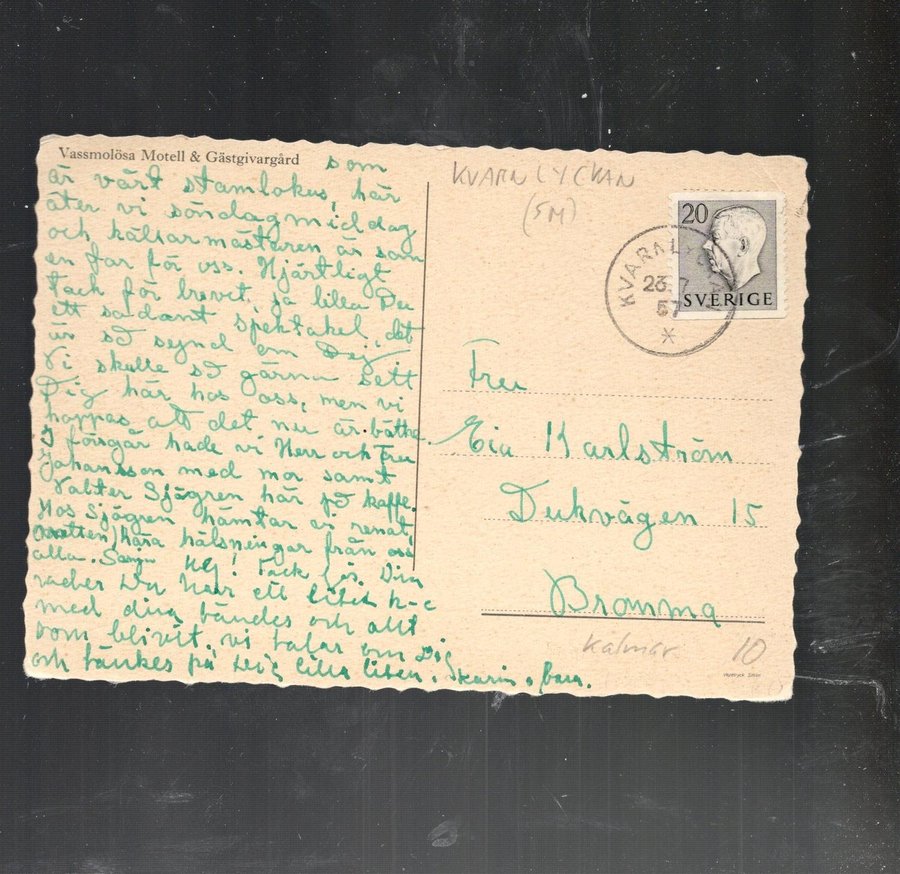 Vassmolösa Motell & Gästgivargård som
är vårt stamlokus, här
äter vi söndagmiddag
och källarmästaren är som
en far för oss. Hjärtligt
tack för brevet, ja lilla Du
ett sådant spektakel, det
är så synd om Dej.
Vi skulle så gärna sett
Dig här hos oss, men vi
hoppas att det nu är bättre.
I förrgår hade vi Herr och Fru
Johansson med mor samt
Valter Sjögren här på kaffe.
Hos Sjögren hämtar vi
kära hälsningar från oss
alla. Tack för Dina
Du har ett litet
med dina händer och allt
som blivit, vi talar om Dig
och tänkes på Dig lilla liten. Karin o barn.
KVARNLYCKAN
(SM)
20
SVERIGE
KVARNLYCKAN
23. 7
57
Fru
Eia Karlström
Dukvägen 15
Bromma
Kalmar 10